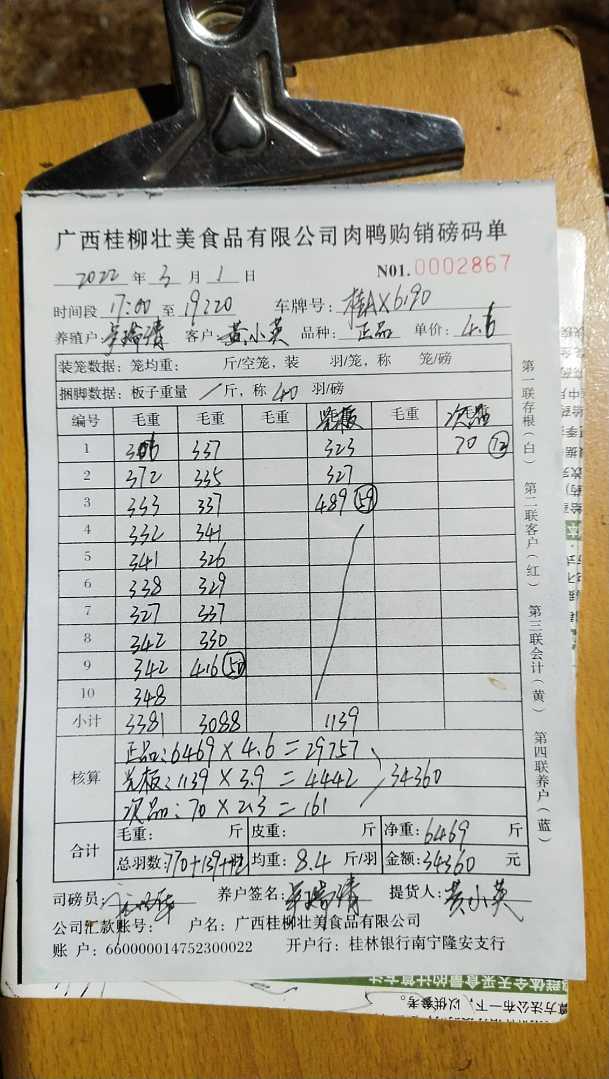 广西桂柳壮美食品有限公司肉鸭购销磅码单
2022年3月1日 N01.0002867
时间段17:00至19:20 车牌号:桂AX6190
养殖户 客户:黄小英 品种:正品 单价:4.6
装笼数据:笼均重: 斤/空笼,装 羽/笼,称 笼/磅
捆脚数据:板子重量 / 斤,称40羽/磅
编号 毛重 毛重 毛重 光板 毛重 次品
1 337 323 70 (12)
2 372 335 327
3 333 337 489 (59)
4 332 341
5 341 326
6 338 329
7 327 337
8 342 330
9 342 416 (50)
10 348
小计 3381 3088 1139
核算 正品:6469×4.6=29757
光板:1139×3.9=4442 34360
次品:70×2.3=161
合计 毛重: 斤 皮重: 斤 净重:6469斤
总羽数:770+139+12 均重:8.4斤/羽 金额:34360元
司磅员: 养户签名: 提货人:黄小英
公司汇款账号: 户名:广西桂柳壮美食品有限公司
账 户:660000014752300022 开户行:桂林银行南宁隆安支行
第一联存根(白) 第二联客户(红) 第三联会计(黄) 第四联养户(蓝)
群体全天采食量的计算方法
算方法公布一下,以供参考。